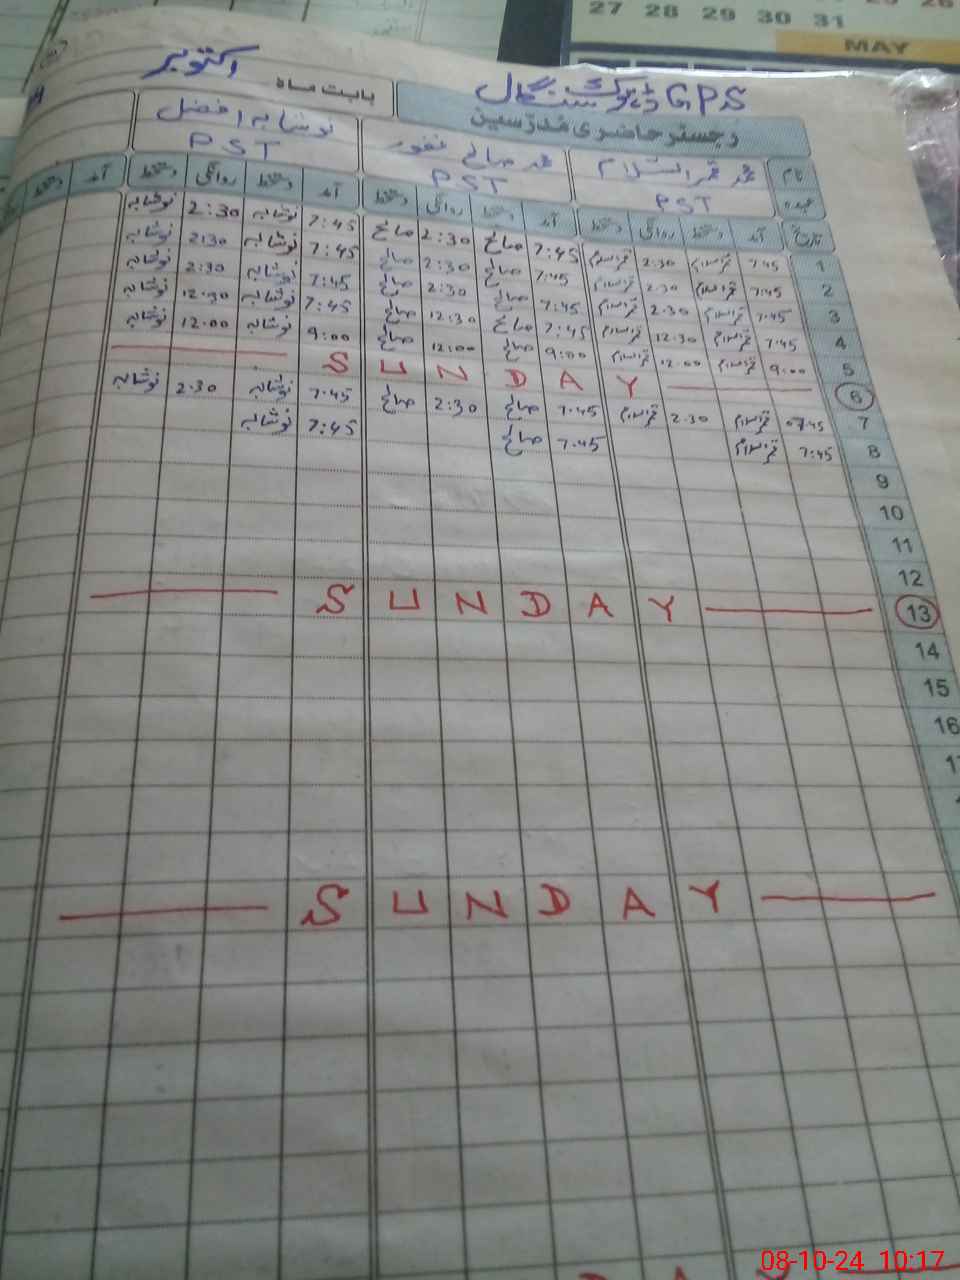 25 26
27 28 29 30 31
MAY
GPS ڈیوک سنگال
بابت ماہ اکتوبر
رجسٹر حاضری مدرسین
نام محمد قمر السلام محمد صالح غفور نوشابہ افضل
عہدہ PST PST PST
تاریخ آمد دستخط روانگی دستخط آمد دستخط روانگی دستخط آمد دستخط روانگی دستخط آمد دستخط
1 7:45 قمرالسلام 2:30 قمرالسلام 7:45 صالح 2:30 صالح 7:45 نوشابہ 2:30 نوشابہ
2 7:45 قمرالسلام 2:30 قمرالسلام 7:45 صالح 2:30 صالح 7:45 نوشابہ 2:30 نوشابہ
3 7:45 قمرالسلام 2:30 قمرالسلام 7:45 صالح 2:30 صالح 7:45 نوشابہ 2:30 نوشابہ
4 7:45 قمرالسلام 12:30 قمرالسلام 7:45 صالح 12:30 صالح 7:45 نوشابہ 12:30 نوشابہ
5 9:00 قمرالسلام 12:00 قمرالسلام 9:00 صالح 12:00 صالح 9:00 نوشابہ 12:00 نوشابہ
6 SUNDAY
7 07:45 قمرالسلام 2:30 قمرالسلام 7:45 صالح 2:30 صالح 7:45 نوشابہ 2:30 نوشابہ
8 7:45 قمرالسلام 7:45 صالح 7:45 نوشابہ
9
10
11
12
13 SUNDAY
14
15
16
SUNDAY
08-10-24 10:17